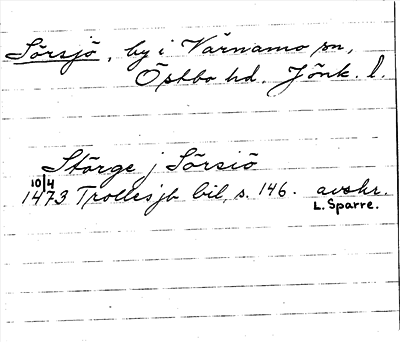 Sörsjö, by i Värnamo sn,
Östbo hd. Jönk. l.
Störge j Sörsiö
10/4
1473 Trollesjb bil, s. 146. avskr.
L. Sparre.